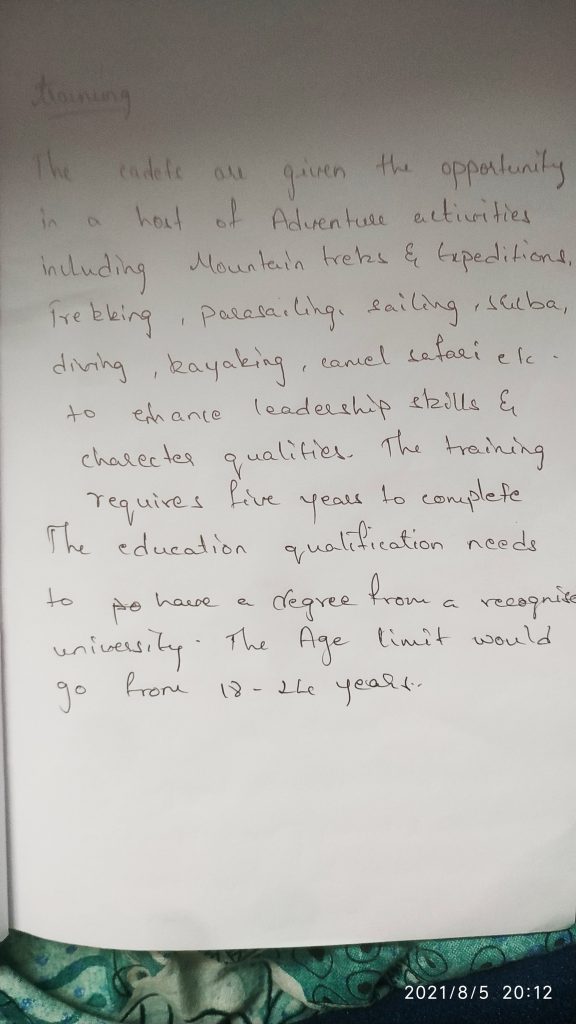 Training
The cadets are given the opportunity
in a host of Adventure activities
including Mountain treks & Expeditions,
Trekking, parasailing. sailing, scuba,
diving, kayaking, camel safari etc.
to enhance leadership skills &
charecter qualities. The training
requires five years to complete
The education qualification needs
to have a degree from a recognise
university. The Age limit would
go from 18-24 years..
2021/8/5 20:12